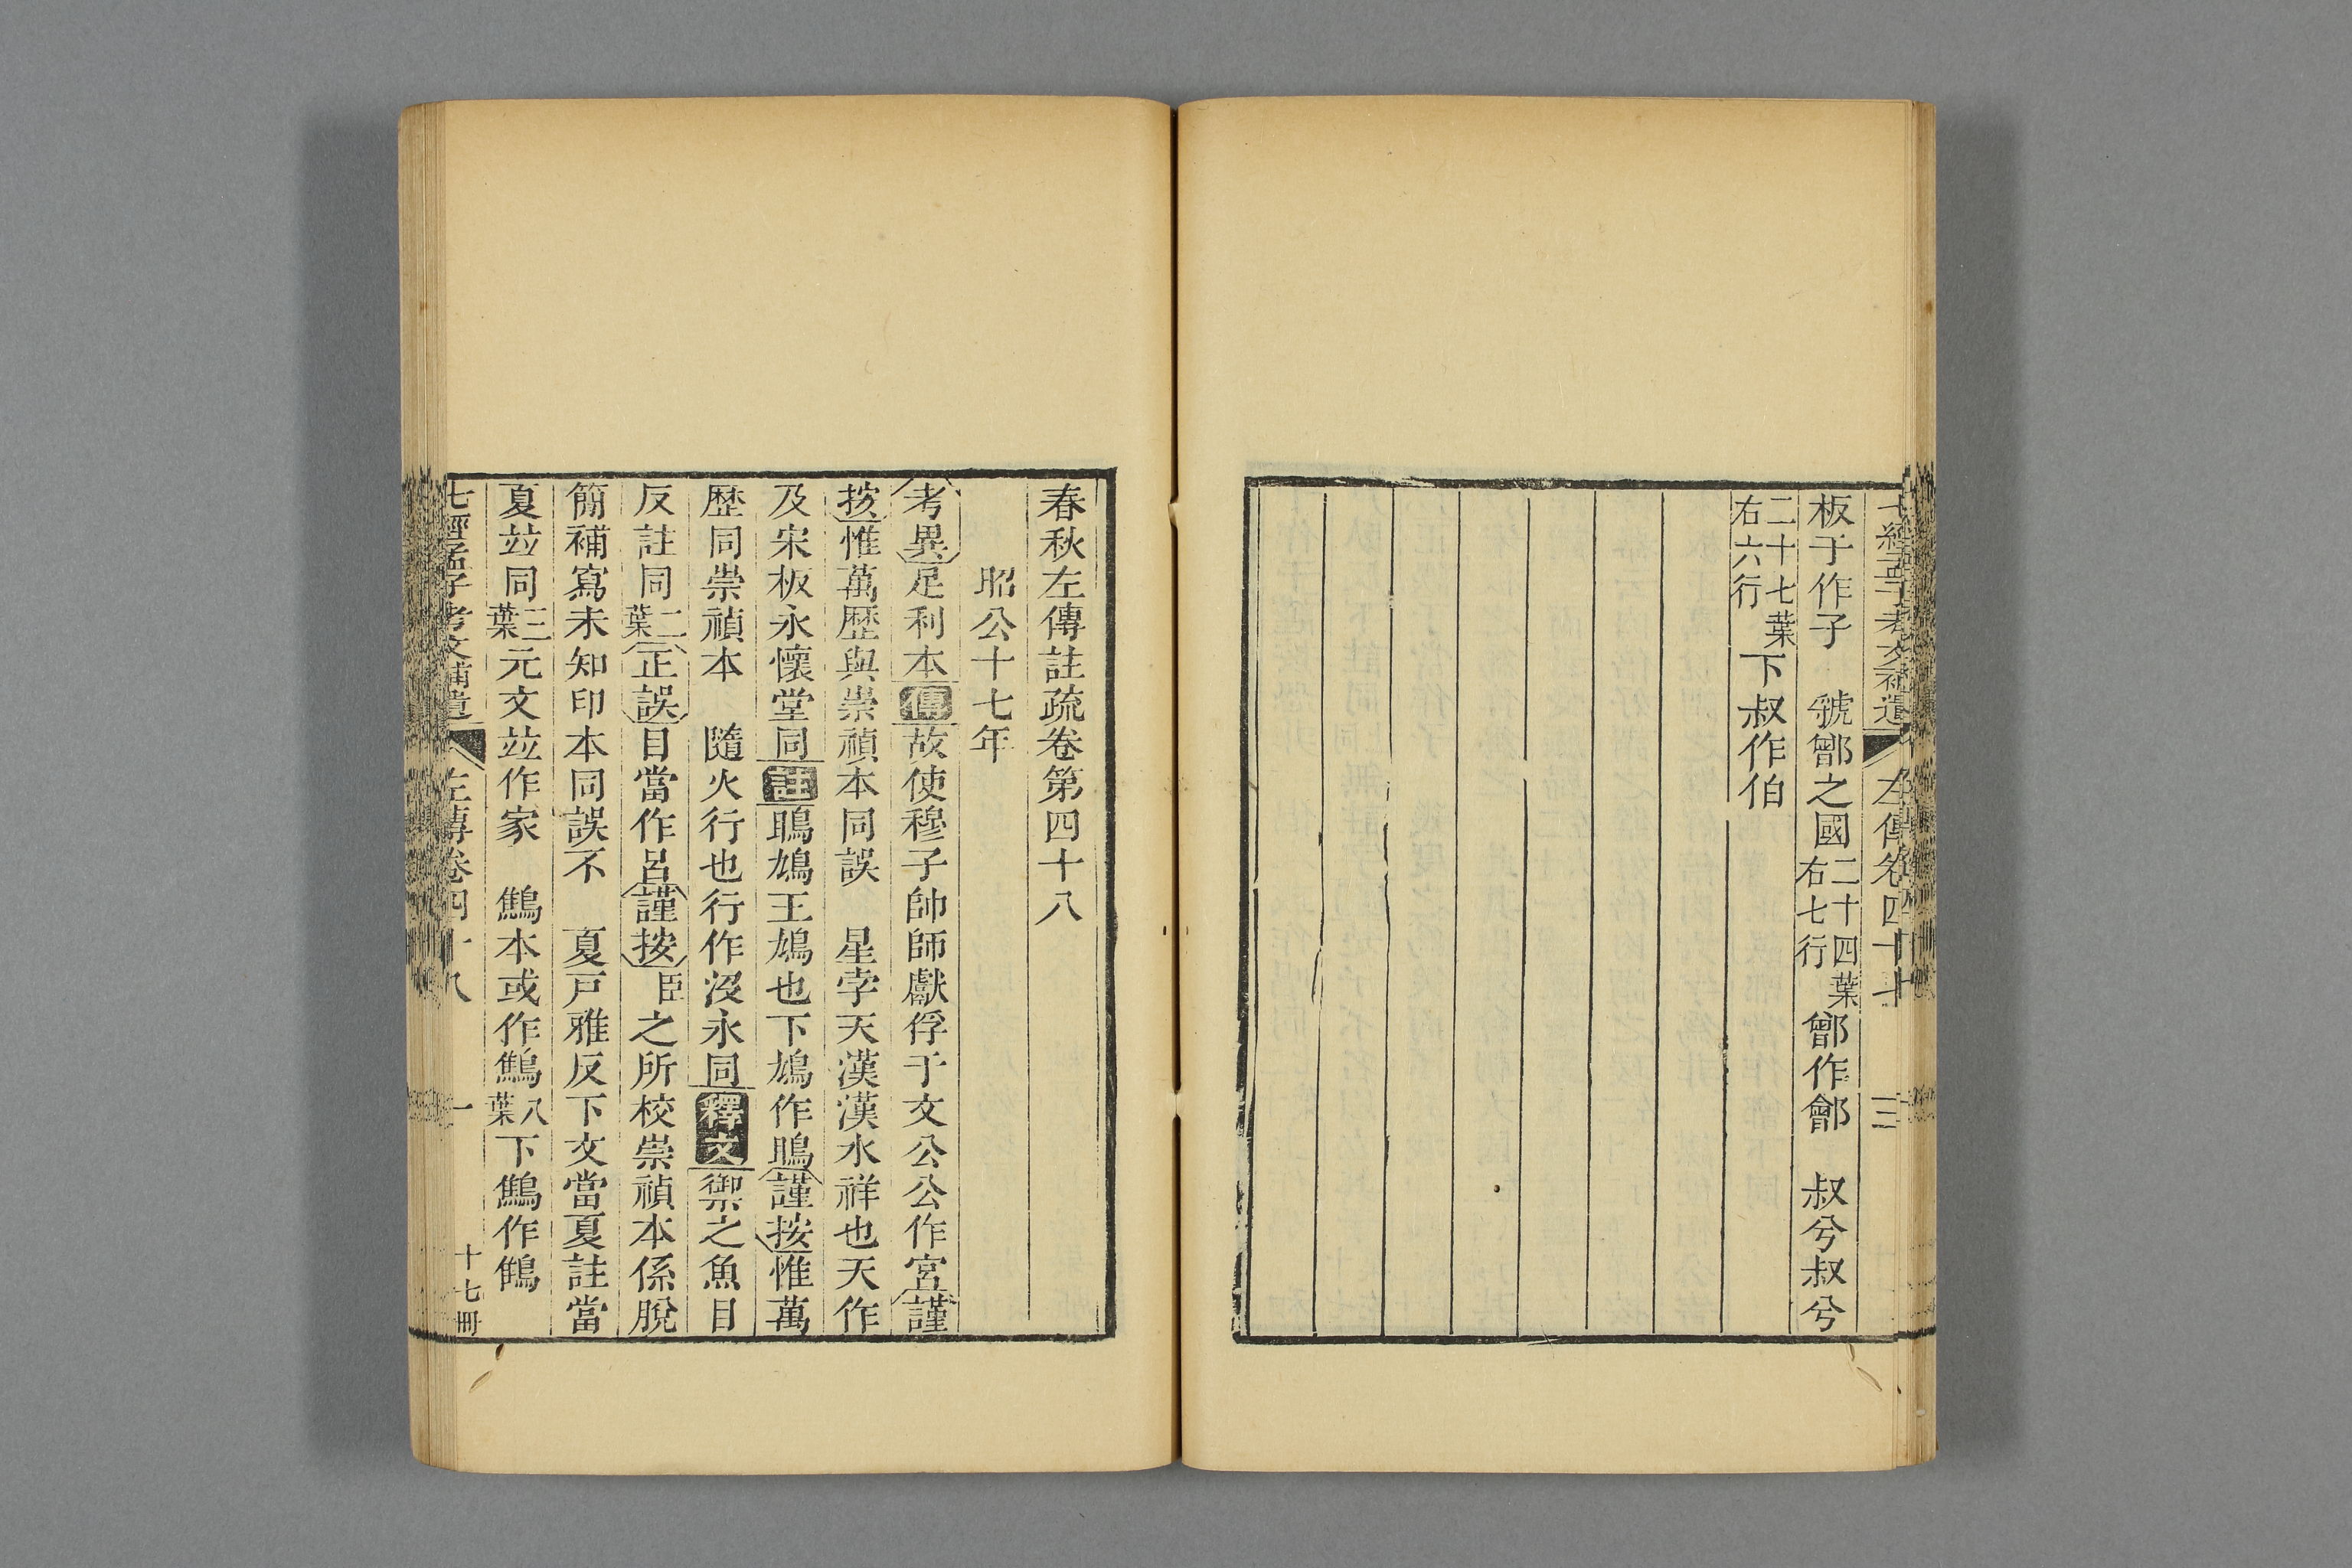 七經孟子考文補遺 左傳卷四十七 三
板于作子 虢鄫之國二十四葉右七行鄫作鄶 叔兮叔兮
二十七葉右六行下叔作伯
春秋左傳註疏卷第四十八
昭公十七年
考異足利本傳故使穆子帥師獻俘于文公公作宮謹
按惟萬歷與崇禎本同誤 星孛天漢漢水祥也天作
及宋板永懷堂同註鵙鳩王鳩也下鳩作鵙謹按惟萬
歷同崇禎本 隨火行也行作沒永同釋文禦之魚目
反註同二葉正誤目當作呂謹按臣之所校崇禎本係脫
簡補寫未知印本同誤不 夏戸雅反下文當夏註當
夏竝同三葉元文竝作家 鷦本或作鷦八葉下鷦作鶴
七經孟子考文補遺 左傳卷四十八 一 十七冊